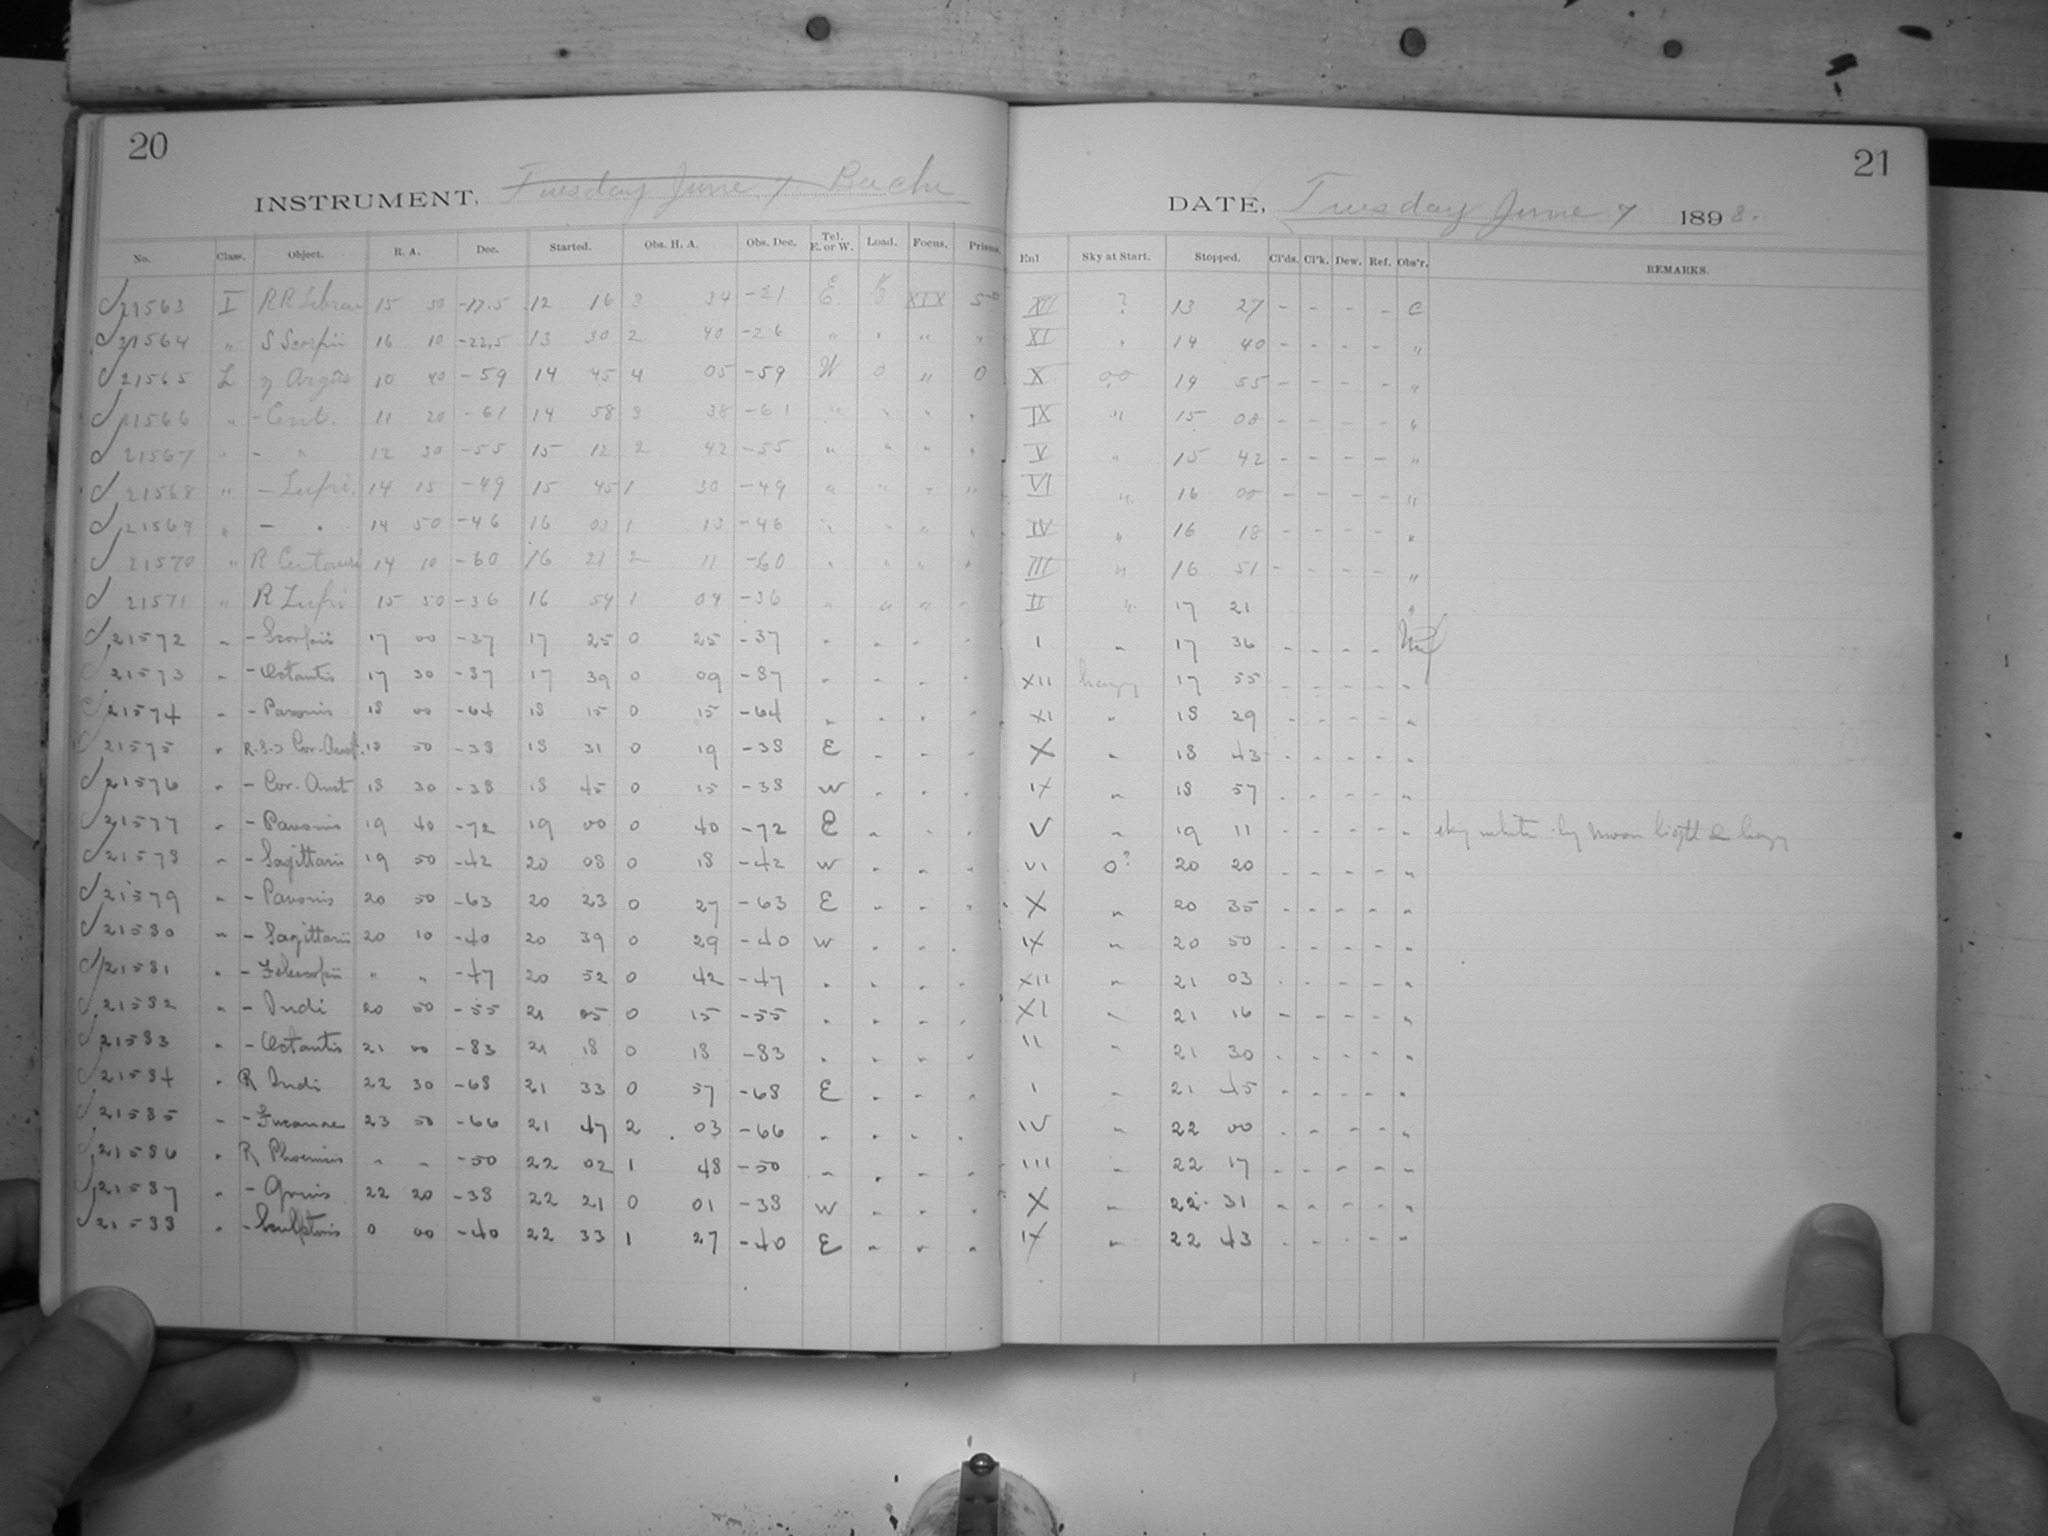 20
INSTRUMENT, Tuesday June 7 Bache
No. Class. Object. R. A. Dec. Started. Obs. H. A. Obs. Dec. Tel. E. or W. Load. Focus. Prisms.
21563 I RR Librae 15 30 -17.5 12 16 3 34 -21 E XIX
21564 " S Scorpii 16 10 -22.5 13 30 2 40 -26 " " " "
21565 L η Argus 10 40 -59 14 45 4 05 -59 W 0 " 0
21566 " - Cent. 11 20 -61 14 58 3 38 -61 " " " "
21567 " - " 12 30 -55 15 12 2 42 -55 " " " "
21568 " - Lupi, 14 15 -49 15 45 1 30 -49 " " " "
21569 " - " 14 50 -46 16 03 1 13 -46 " " " "
21570 " R Centauri 14 10 -60 16 21 2 11 -60 " " " "
21571 " R Lupi 15 50 -36 16 54 1 04 -36 " " " "
21572 " - Scorpii 17 00 -37 17 25 0 25 -37 " " " "
21573 " - Octantis 17 30 -87 17 39 0 09 -87 " " " "
21574 " - Pavonis 18 00 -64 18 15 0 15 -64 " " " "
21575 " R.S.S Cor-Aust. 18 50 -38 18 31 0 19 -38 E " " "
21576 " - Cor-Aust 18 30 -38 18 45 0 15 -38 W " " "
21577 " - Pavonis 19 40 -72 19 00 0 40 -72 E " " "
21578 " - Sagittarii 19 50 -42 20 08 0 18 -42 W " " "
21579 " - Pavonis 20 50 -63 20 23 0 27 -63 E " " "
21580 " - Sagittarii 20 10 -40 20 39 0 29 -40 W " " "
21581 " - Telescopii " " -47 20 52 0 42 -47 " " " "
21582 " - Indi 20 50 -55 21 05 0 15 -55 " " " "
21583 " - Octantis 21 00 -83 21 18 0 18 -83 " " " "
21584 " R Indi 22 30 -68 21 33 0 57 -68 E " " "
21585 " - Tucanae 23 50 -66 21 47 2 03 -66 " " " "
21586 " R Phoenicis " " -50 22 02 1 48 -50 " " " "
21587 " - Gruis 22 20 -38 22 21 0 01 -38 W " " "
21588 " - Sculptoris 0 00 -40 22 33 1 27 -40 E " " "
21
DATE, Tuesday June 7 1898.
Enl Sky at Start. Stopped. Cl'ds. Cl'k. Dew. Ref. Obs'r. REMARKS.
XII ? 13 27 - - - - C
XI " 14 40 - - - - "
X 14 55 - - - - "
IX " 15 08 - - - - "
V " 15 42 - - - - "
VI " 16 00 - - - - "
IV " 16 18 - - - - "
III " 16 51 - - - - "
II " 17 21 "
I " 17 36 - - - -
XII hazy 17 55 - - - - "
XI " 18 29 - - - - "
X " 18 43 - - - - "
IX " 18 57 - - - - "
V " 19 11 - - - - " sky white by moon light & hazy
VI 0? 20 20 - - - - "
X " 20 35 - - - - "
IX " 20 50 - - - - "
XII " 21 03 - - - - "
XI " 21 16 - - - - "
II " 21 30 - - - - "
I " 21 45 - - - - "
IV " 22 00 - - - - "
III " 22 17 - - - - "
X " 22 31 - - - - "
IX " 22 43 - - - - "